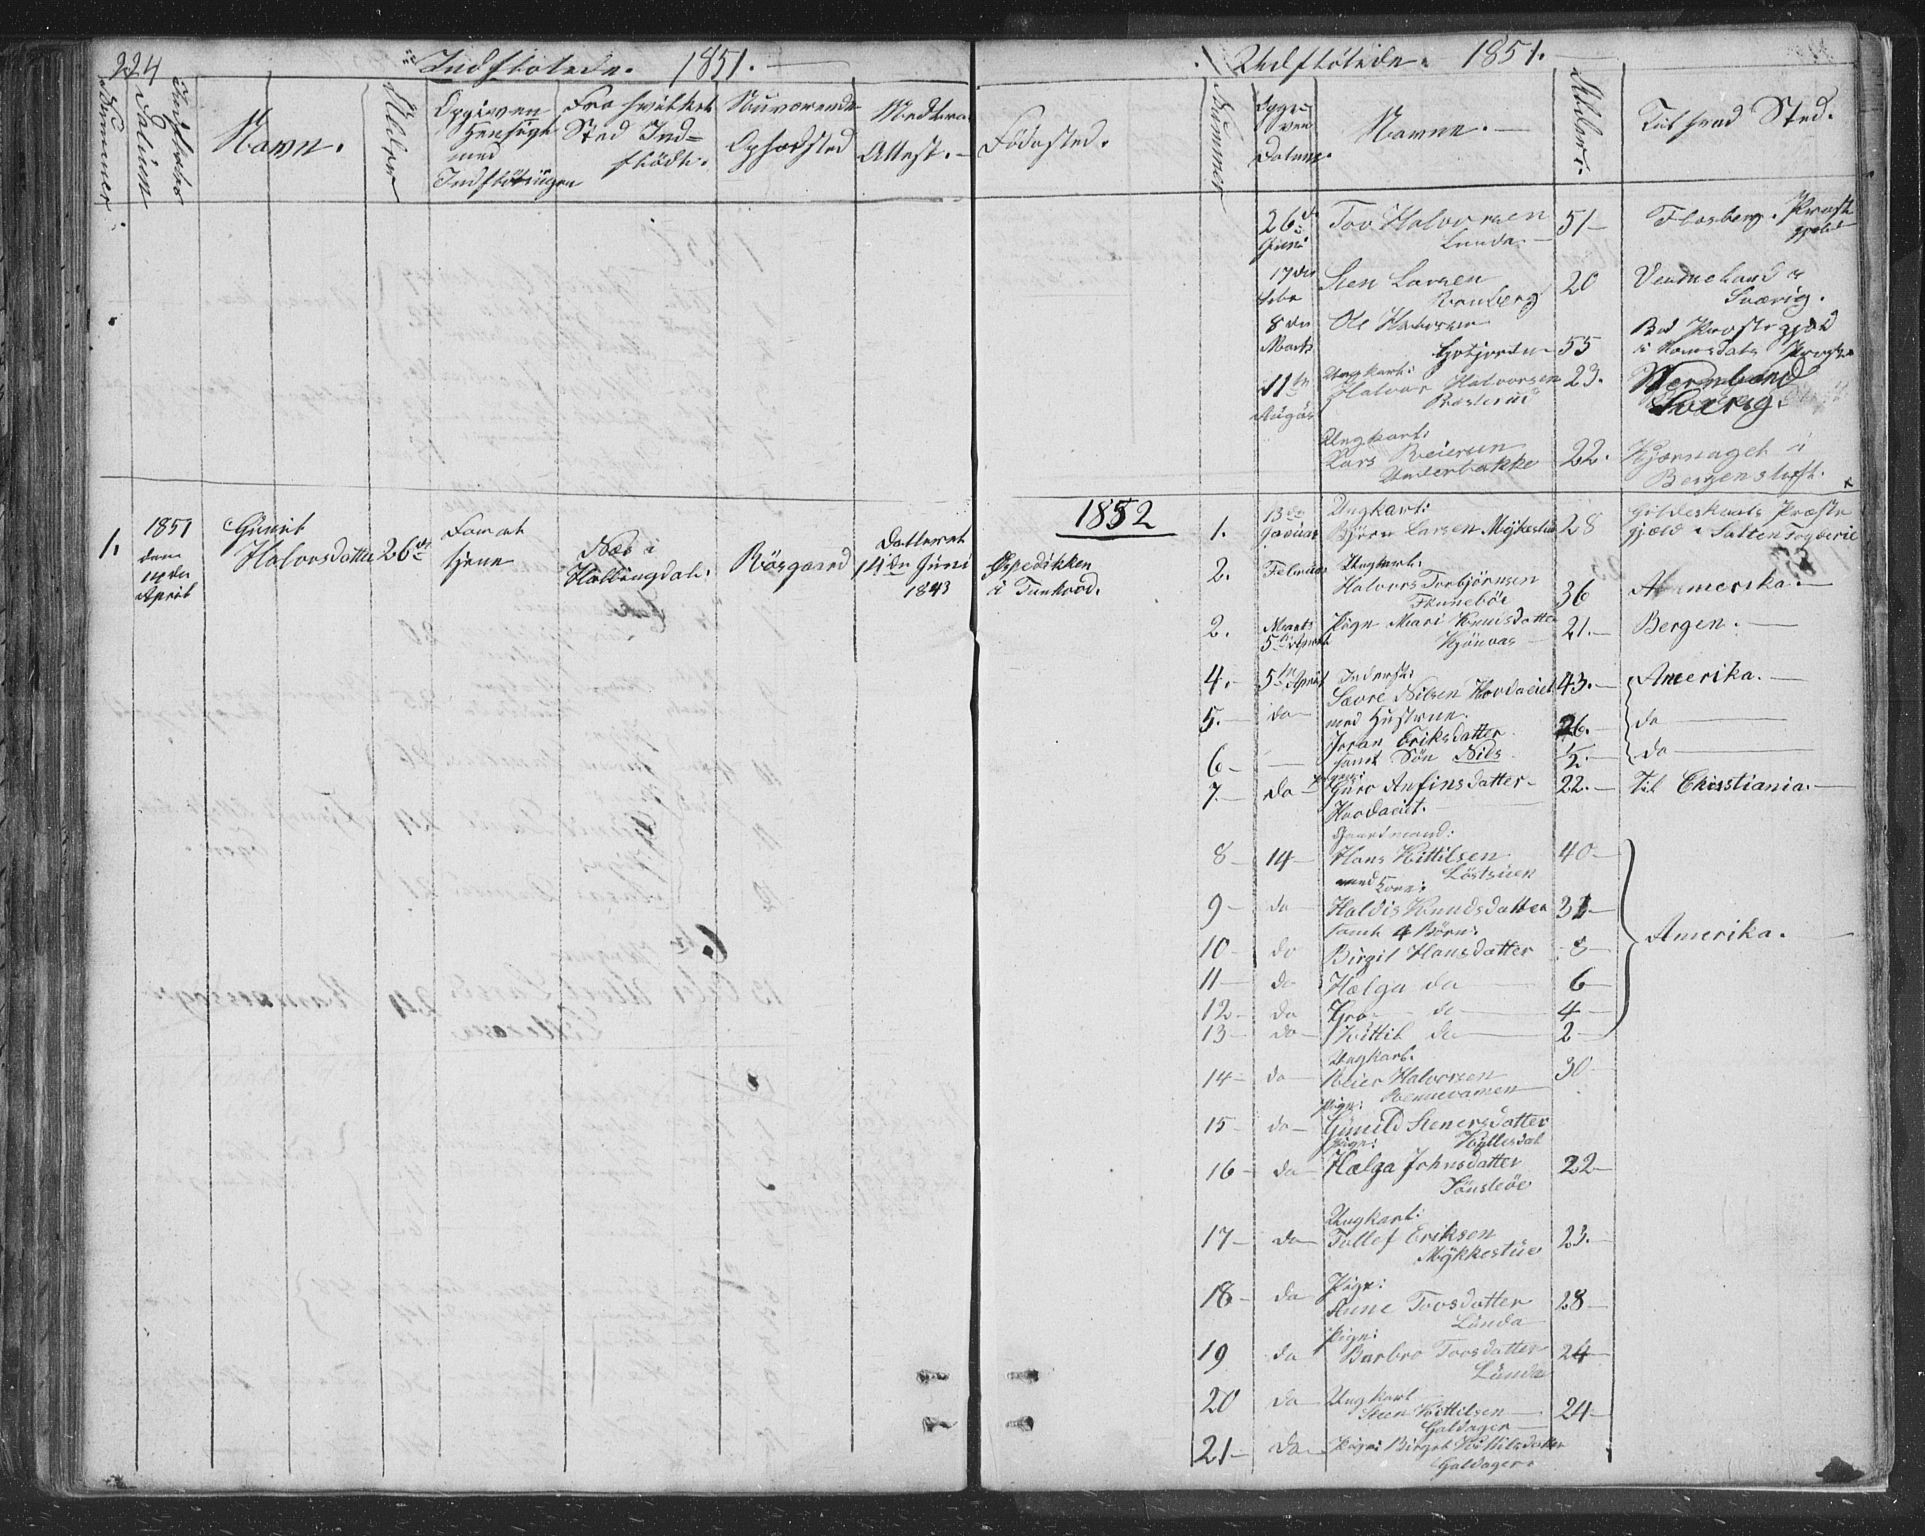 224
Indflötede. 1851.
Nummer.
Indflöttedes
Datum
Navn.
Alder
Opgiven
Hensigt
med
Indflötningen
Fra hvilket
Sted Ind=
flödt.
Nuværende
Opholdsted
Medbra
Attest.
Födested.
1.
1851
den
April
Gunild
Halvorsdatter
26
For at
tjene
Næs i
Hallingdal.
Rösgaard
Datteret
14de Juni
1843
Espedikken
i Tunhovd.
Udflötede. 1851.
Nummer
Opgi=
ven
Datum.
Navne.
Alder.
Til hvad Sted.
26de
Juni
Tov Halvorsen
Lunda
51
Flesberg Præste
gjeld
17de
Febr
Sten Larsen
20
Vermeland i
Sverig.
8de
Marts
Ole Halvorsen
55
Bod Præstegjeld
i Romsdals Provstie
11te
August
Ungkarl:
Halvor Halvorsen
23.
Wermland
Sverig.
Ungkarl:
Lars Reiersen
Underbakke
22.
i
Bergens Stift.
1852
1.
13de
Januar
Ungkarl:
Björn Larsen Mykkestue
28
Gildeskaals Præste
gjæld i Salten Fogderie
2.
Februar
Ungkarl:
Halvor Torbjörnsen
Frünneböe
36
Amerika.
2.
Marts
5te April
Pige Mari Knudsdatter
Kjönaas
21.
Bergen.
4.
5te April
Inderst:
Sævre Nilsen Hovdaeiet
43.
Amerika.
5.
do
med Hustrue.
Joran Eriksdatter
26.
do
6
samt Sön Nils
½.
do
7.
do
Pige:
Guro Anfinsdatter
Hovdaeiet.
22.
til Christiania.
8
14
Gaardmand:
Hans Kittilsen
Löstuen
40
9
do
med Kone:
Haldis Knudsdatter
31
samt 4 Börn:
10
do
Birgit Hansdatter
8
Amerika.
11
do
Hælga do
6
12
do
Gro do
4
13
do
Kittil do
2
14
do
Ungkarl.
Reier Halvorsen
Rennevamen
30
15
do
Pige:
Gunild Stenersdatter
Kyllesdal
16
do
Pige:
Hælga Johnsdatter
Tönsleöe
22
17
do
Ungkarl:
Tollef Eriksen
Mykkestue
23.
18
do
Pige:
Anne Tovsdatter
Lunda
28
19
do
Pige:
Barbro Tovsdatter
Lunda
24
20
do
Ungkarl
Sten Kittilsen
Galdager
24
21
do
Pige: Birgit Kittilsdatter
Galdager.